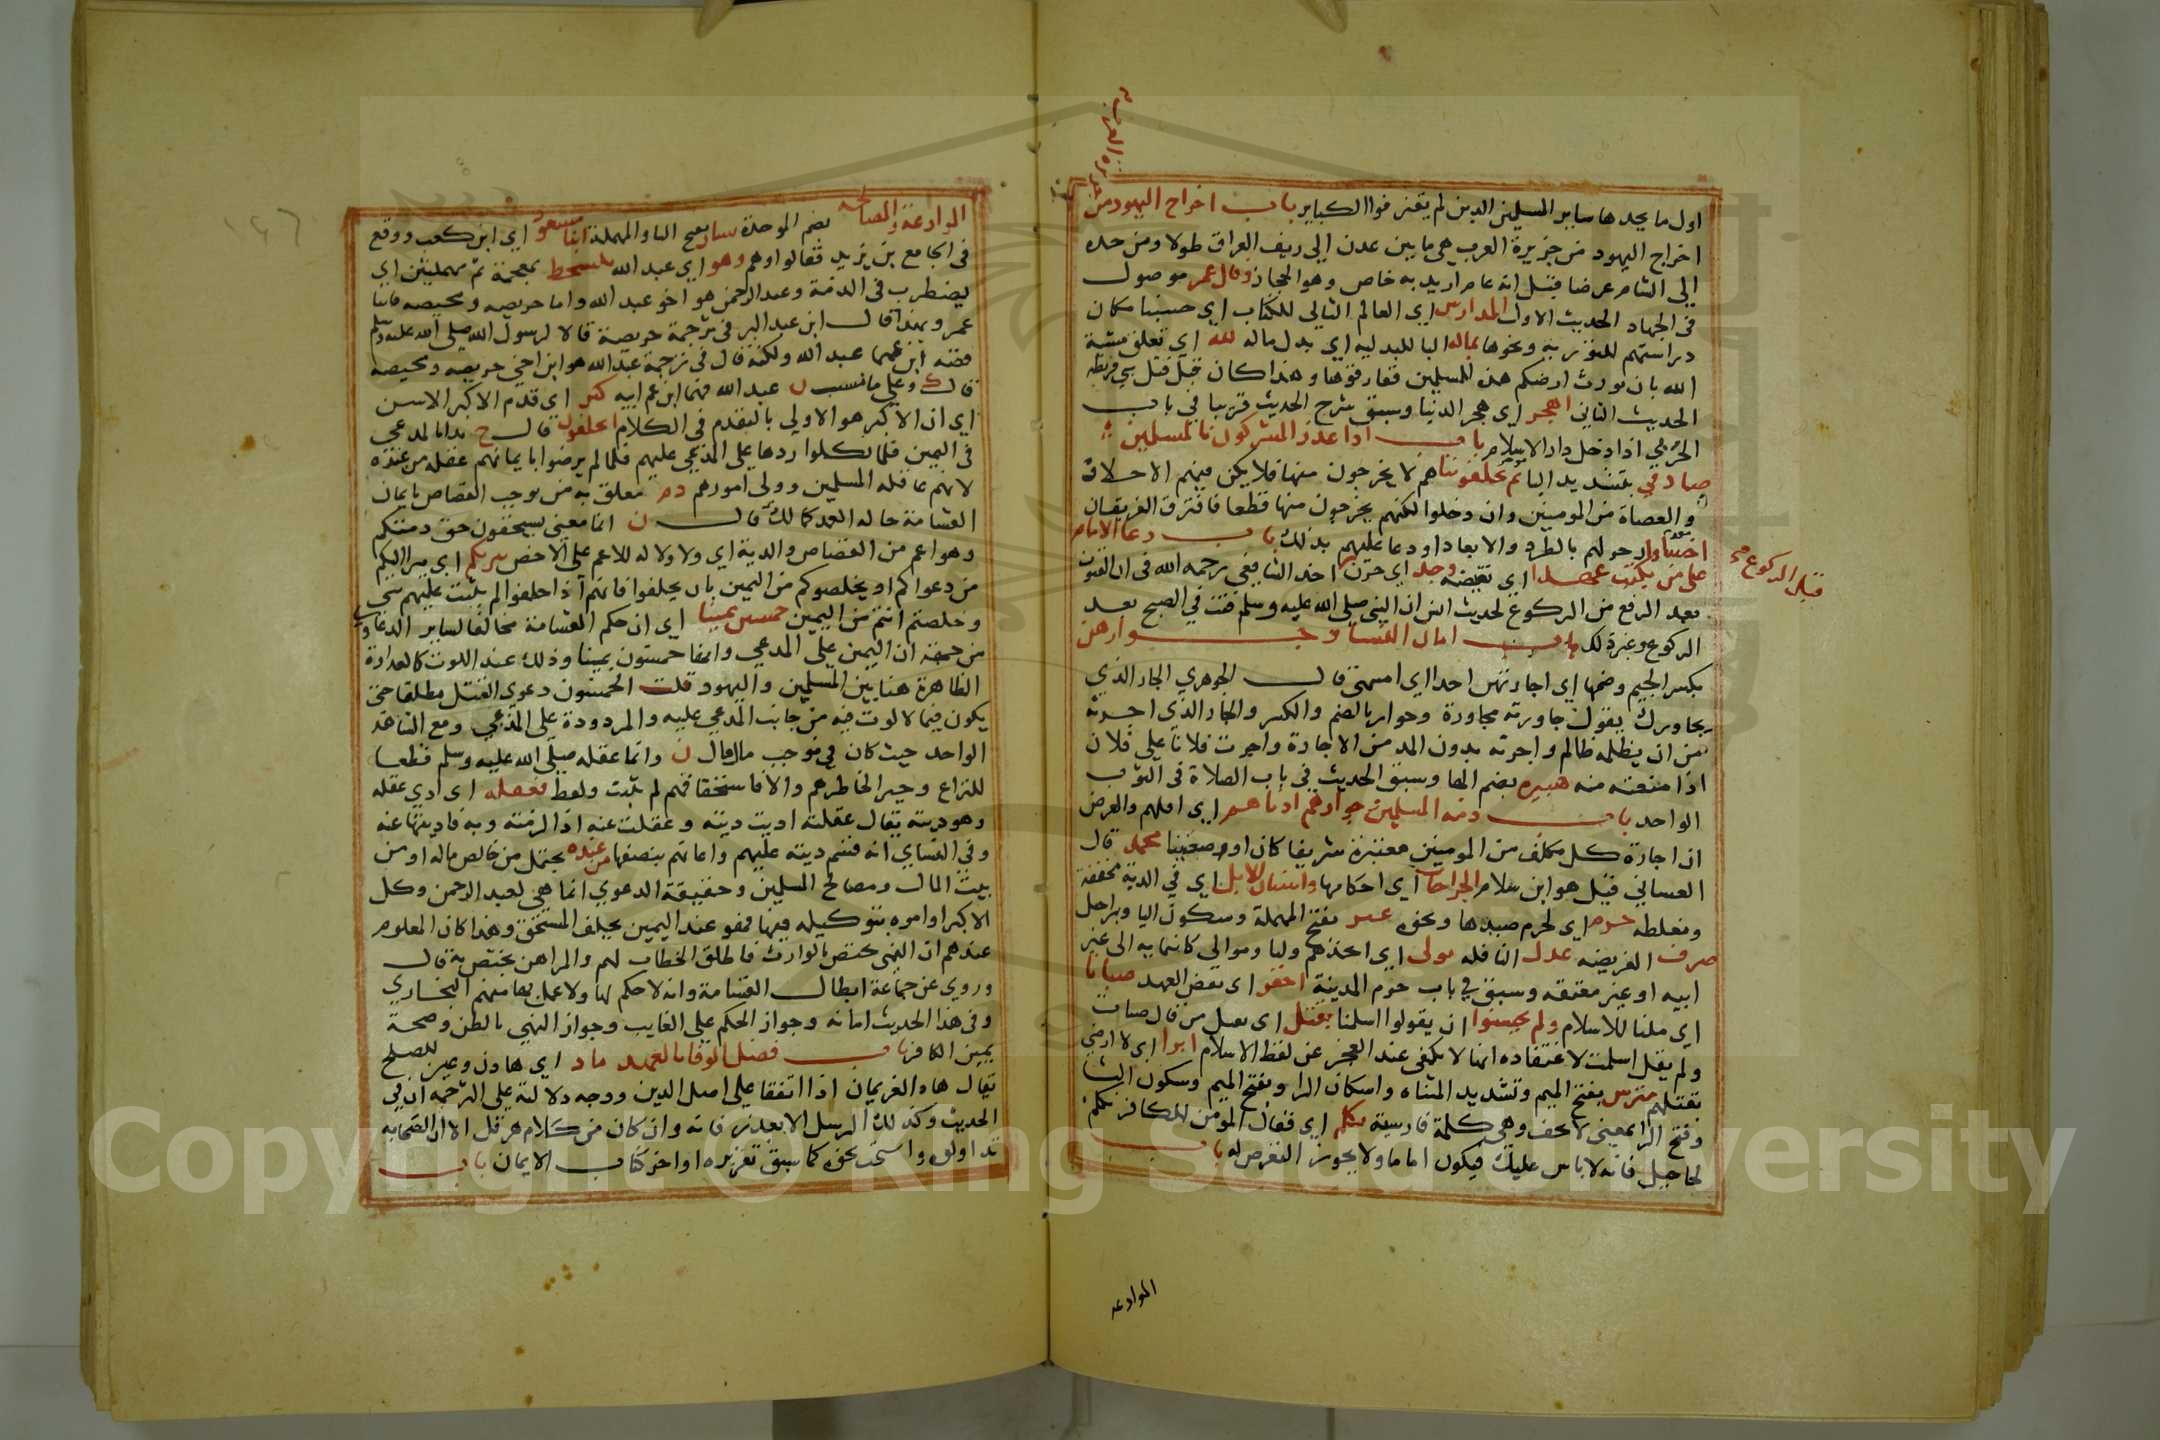 جزيرة العرب
اول ما يجدها ساير المسلمين الدين لم يقترفوا الكباير باب اخراج اليهود من
اخراج اليهود من جزيرة العرب هي ما بين عدن الى ريف العراق طولا ومن جده
الى الشام عرضا قيل انه عام اريد به خاص وهو الحجاز وقال عمر موصول
في الجهاد الحديث الاول المدارس اي العالم التالي للكتاب اي حسبنا مكان
دراستهم للتوراة ونحوها بماله البا للبدليه اي بدل ماله لله اي تعلق مشية
الله بان يورث ارضكم هذه للمسلمين ففارقوها وهذا كان قبل قتل بني قريظة
الحديث الثاني اهجر اي هجر الدنيا وسبق شرح الحديث قريبا في باب
الحربي اذا دخل دار الاسلام باب اذا غدر المشركون بالمسلمين
صادقي بتشديد اليا ثم تخلفوننا هم لا يخرجون منها فلا يكن فيهم الاخلاف
والعصاة من المومنين وان دخلوا لكنهم يخرجون منها قطعا فافترق الفريقان
اخسئوا زجر لهم بالطرد والابعاد او دعا عليهم بذلك باب دعا الامام
على من نكث عهدا اي نقيضه وجد اي حزن اخذ الشافعي رحمه الله في ان القنوت
بعد الرفع من الركوع لحديث انس ان النبي صلى الله عليه وسلم قنت في الصبح بعد
قبل الركوع صح
الركوع وغير ذلك باب امان النساء وجوارهن
بكسر الجيم وضمها اي اجارتهن احدا اي امنتي قال الجوهري الجار الذي
يجاورك يقول جاورته مجاورة وجوار بالضم والكسر والجار الذي اجرته
من ان يظلمه ظالم واجرته بدون المد من الاجارة واجرت فلانا على فلان
اذا منعته منه هبيره بضم الها وسبق الحديث في باب الصلاة في الثوب
الواحد باب ذمة المسلمين جوارهم ادناهم اي اقلهم والغرض
ان اجارة كل مكلف من المومنين معتبرة شريفا كان او وضيعا محمد قال
الغساني قيل هو ابن سلام الجراحات اي احكامها واسنان الابل اي في الدية مخففة
ومغلطه حرم اي لحرم صيدها ونحوه عير بفتح المهملة وسكون اليا وبراجبل
صرف الفريضه عدل النافله تولى اي اتخذهم وليا وموالي كانتمايه الى غير
ابيه او غير معتقه وسبق في باب حرم المدينة اخفر اي نقض العهد صبانا
اي ملنا للاسلام ولم يحسنوا ان يقولوا اسلمنا يقتل اي يقتل من قال صبات
ولم يقل اسلمت لاعتقاده انما لا يكفي عند العجز عن لفظ الاسلام ابرا اي لا ارضى
بقتلهم مترس بفتح الميم وتشديد المثناه واسكان الرا وبفتح الميم وسكون التا
وفتح الرا بمعنى لا تخف وهي كلمة فارسية تكلم اي فقال المومن للكافر تكلم
لحاجتك فانه لا باس عليك فيكون امانا ولا يجوز التعرض له باب
الموادعه
الموادعة والمصالحة بضم الموحدة يسار بفتح اليا والمهملة ابنا مسعود اي ابن كعب ووقع
في الجامع بن يزيد فقالوا وهم وهو اي عبد الله يتشحط بمعجمة ثم مهملتين اي
يضطرب في الدمة وعبد الرحمن هو اخو عبد الله واما حويصه ومحيصه فابنا
عمر وبهذا قال ابن عبد البر في ترجمة حويصة قالا لرسول الله صلى الله عليه وسلم
قصه ابن عمهما عبد الله ولكنه قال في ترجمة عبد الله هو ابن اخي حويصه ومحيصه
قال ك وعلى ما نسب ن عبد الله فهما ابن عم ابيه كبر اي قدم الاكبر الاسن
اي ان الاكبر هو الاولى بالتقدم في الكلام اتحلفون قال ح بدا بالمدعي
في اليمين فلما نكلوا ردها على المدعى عليهم فلما لم يرضوا بايمانهم عقله من عنده
لانهم عاقله المسلمين وولى امورهم دم معلق به من يوجب القصاص بايمان
القسامة حاله العمد كمالك قال ن انما معنى يستحقون حق دمتكم
وهو اعم من القصاص والدية اي ولا دلاله للاعم على الاخص تبريكم اي يبرا اليكم
من دعواكم او يخلصوكم من اليمين بان يحلفوا فانهم اذا حلفوا لم يثبت عليهم شي
وخلصتم انتم من اليمين خمسين يمينا اي ان حكم القسامة مخالف لساير الدعاوي
من جهة ان اليمين على المدعي وانها خمسون يمينا وذلك عند اللوث كالعداوة
الظاهرة هنا بين المسلمين واليهود قلت الخمسون دعوى القتل مطلقا حتى
يكون فيما لا لوث فيه من جانب المدعى عليه والمردودة على المدعي ومع الشاهد
الواحد حيث كان في موجب مال قال ن وانما عقله صلى الله عليه وسلم قطعا
للنزاع وجبر الخاطرهم والا فاستحقاقهم لم يثبت ولفظ فعقله اي ادي عقله
وهو ديته يقال عقلته اديت ديته وعقلت عنه اذا لزمته دية فاديتها عنه
وفي النساي انه قسم ديته عليهم واعانهم بنصفها من عنده يحتمل من خالص ماله او من
بيت المال ومصالح المسلمين وحقيقة الدعوى انما هي لعبد الرحمن وكل
الاكبر او امره بتوكيله فيها فهو عند اليمين يحلف المستحق وهذا كان المعلوم
عندهم ان اليمين مختص بالوارث فاطلق الخطاب لهم والمراهن يختص به قال
وروي عن جماعة ابطال القسامة وانه لا حكم لها ولا عمل بها منهم البخاري
وفي هذا الحديث امانه وجواز الحكم على الغايب وجواز اليمين بالظن وصحة
يمين الكافر باب فضل الوفا بالعهد ماد اي هادن وعين للصلح
يقال هاد الغريمان اذا اتفقا على اصل الدين ووجه دلالته على الترجمة ان في
الحديث وكذلك الرسل لا تغدر فانه وان كان من كلام هرقل الا ان الصحابه
تداولوه واستحسنوه كما سبق تقريره اواخر كتاب الايمان باب